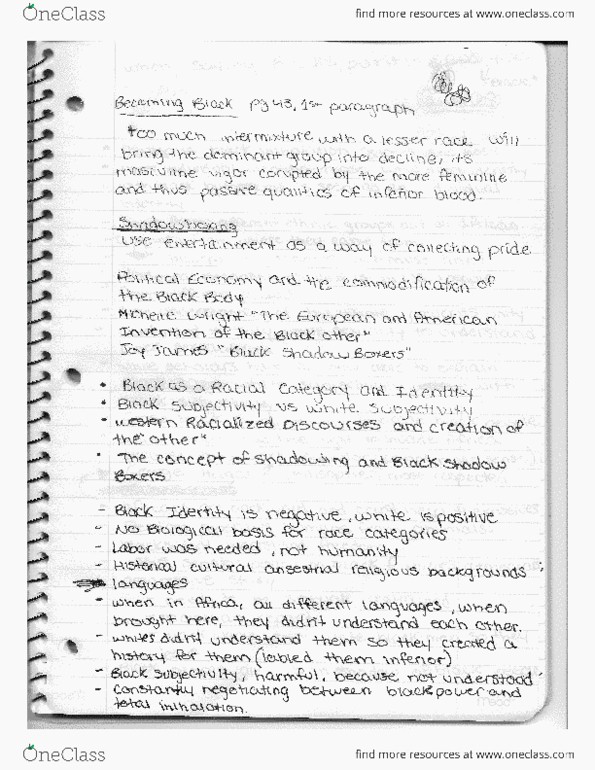 OneClass
find more resources at www.oneclass.com
Becoming Black pg 43, 1st paragraph
too much intermixture with a lesser race will
bring the dominant group into decline, its
masculine vigor corrupted by the more feminine
and thus passive qualities of inferior blood.
Shadowboxing
Use entertainment as a way of collecting pride.
Political Economy and the commodification of
the Black Body
Michelle Wright "The European and American
Invention of the Black Other"
Joy James "Black Shadow Boxers"
• Black as a Racial Category and Identity
• Black Subjectivity vs White Subjectivity
• Western Racialized Discourses and creation of
the "other"
• The concept of shadowing and Black Shadow
Boxers
- Black Identity is negative, white is positive
- No Biological basis for race categories
- Labor was needed, not humanity
- Historical cultural ansestrial religious backgrounds
languages
- when in Africa, all different languages, when
brought here, they didn't understand each other.
- whites didn't understand them so they created a
history for them (labled them inferior)
- Black subjectivity, harmful, because not understood
- constantly negotiating between black power and
total inihalation.
OneClass
find more resources at www.oneclass.com